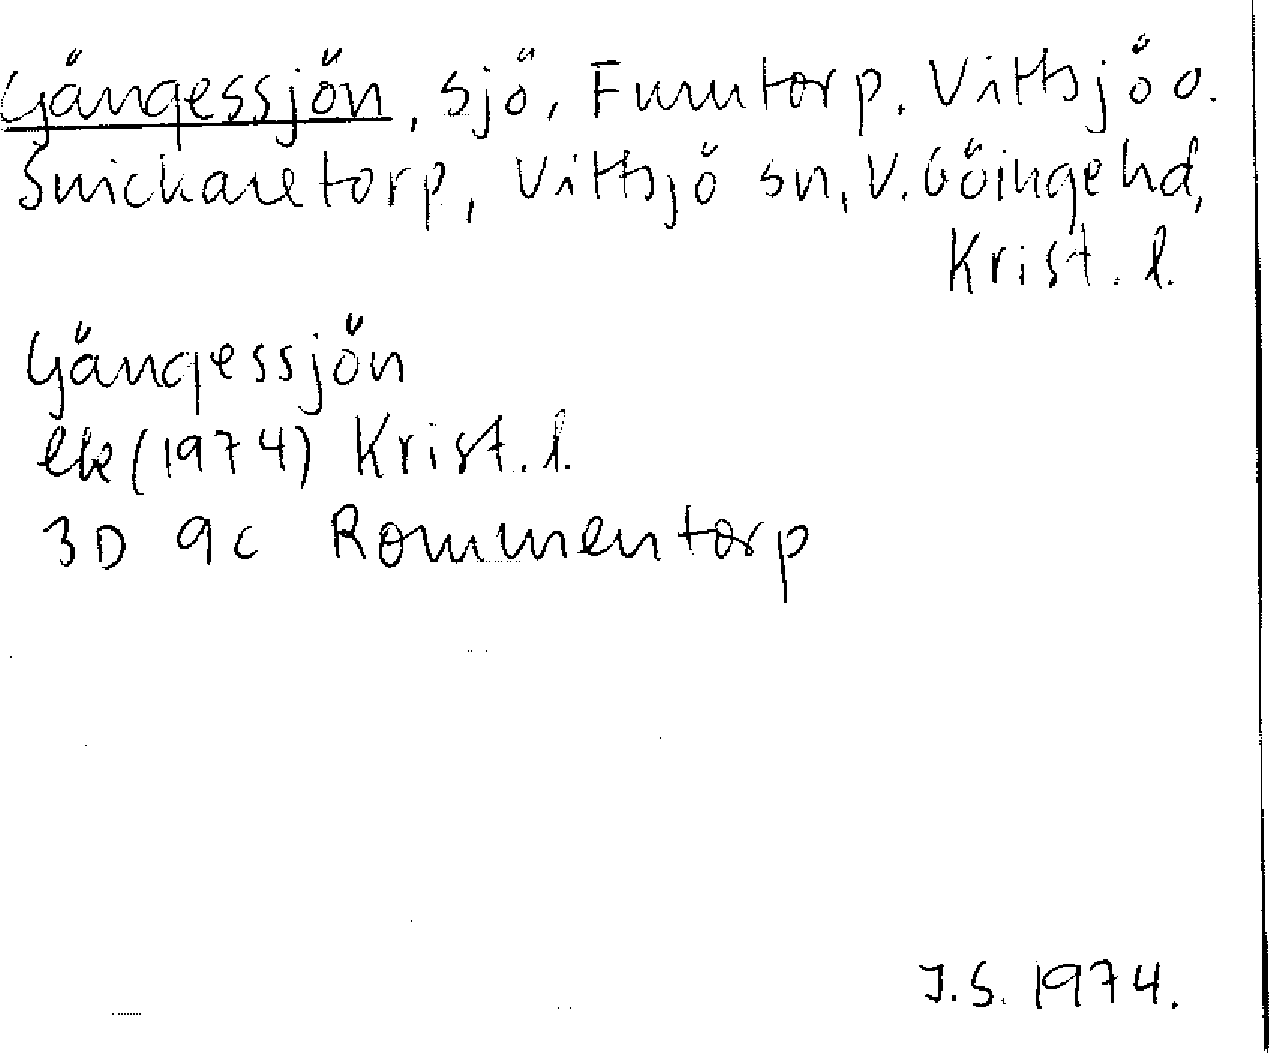 Gängessjön, sjö, Furutorp, Vittsjö o.
Snickaretorp, Vittsjö sn, V. Göinge hd,
Krist. l.
Gängessjön
ek (1974) Krist. l.
3D 9c Rommentorp
J.S. 1974.